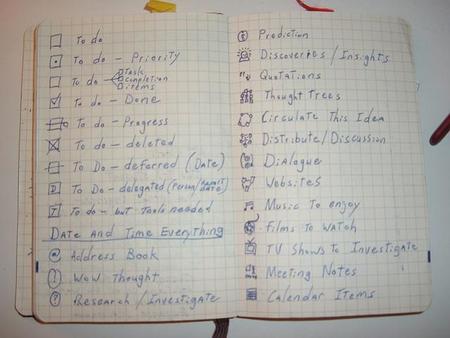 To do
To do - Priority
To do - Task
Completion
items
To do - Done
To do - Progress
To do - deleted
To Do - deferred (Date)
To Do - delegated (Person/ DATE)
To do - but Tools needed
Date And Time Everything
@ Address Book
! Wow Thought
? Research / Investigate
Prediction
Discoveries / Insights
Quotations
Thought Trees
Circulate This Idea
Distribute/Discussion
Dialogue
Websites
Music To enjoy
Films To Watch
TV Shows To Investigate
Meeting Notes
Calendar Items